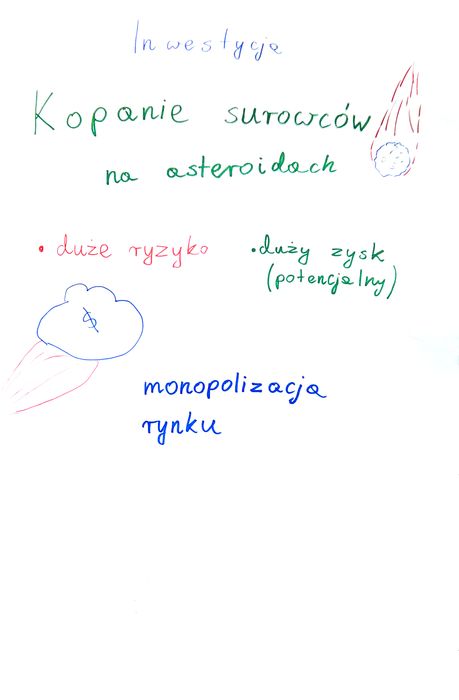 Inwestycja
Kopanie surowców
na asteroidach
• duże ryzyko
• duży zysk
(potencjalny)
$
monopolizacja
rynku